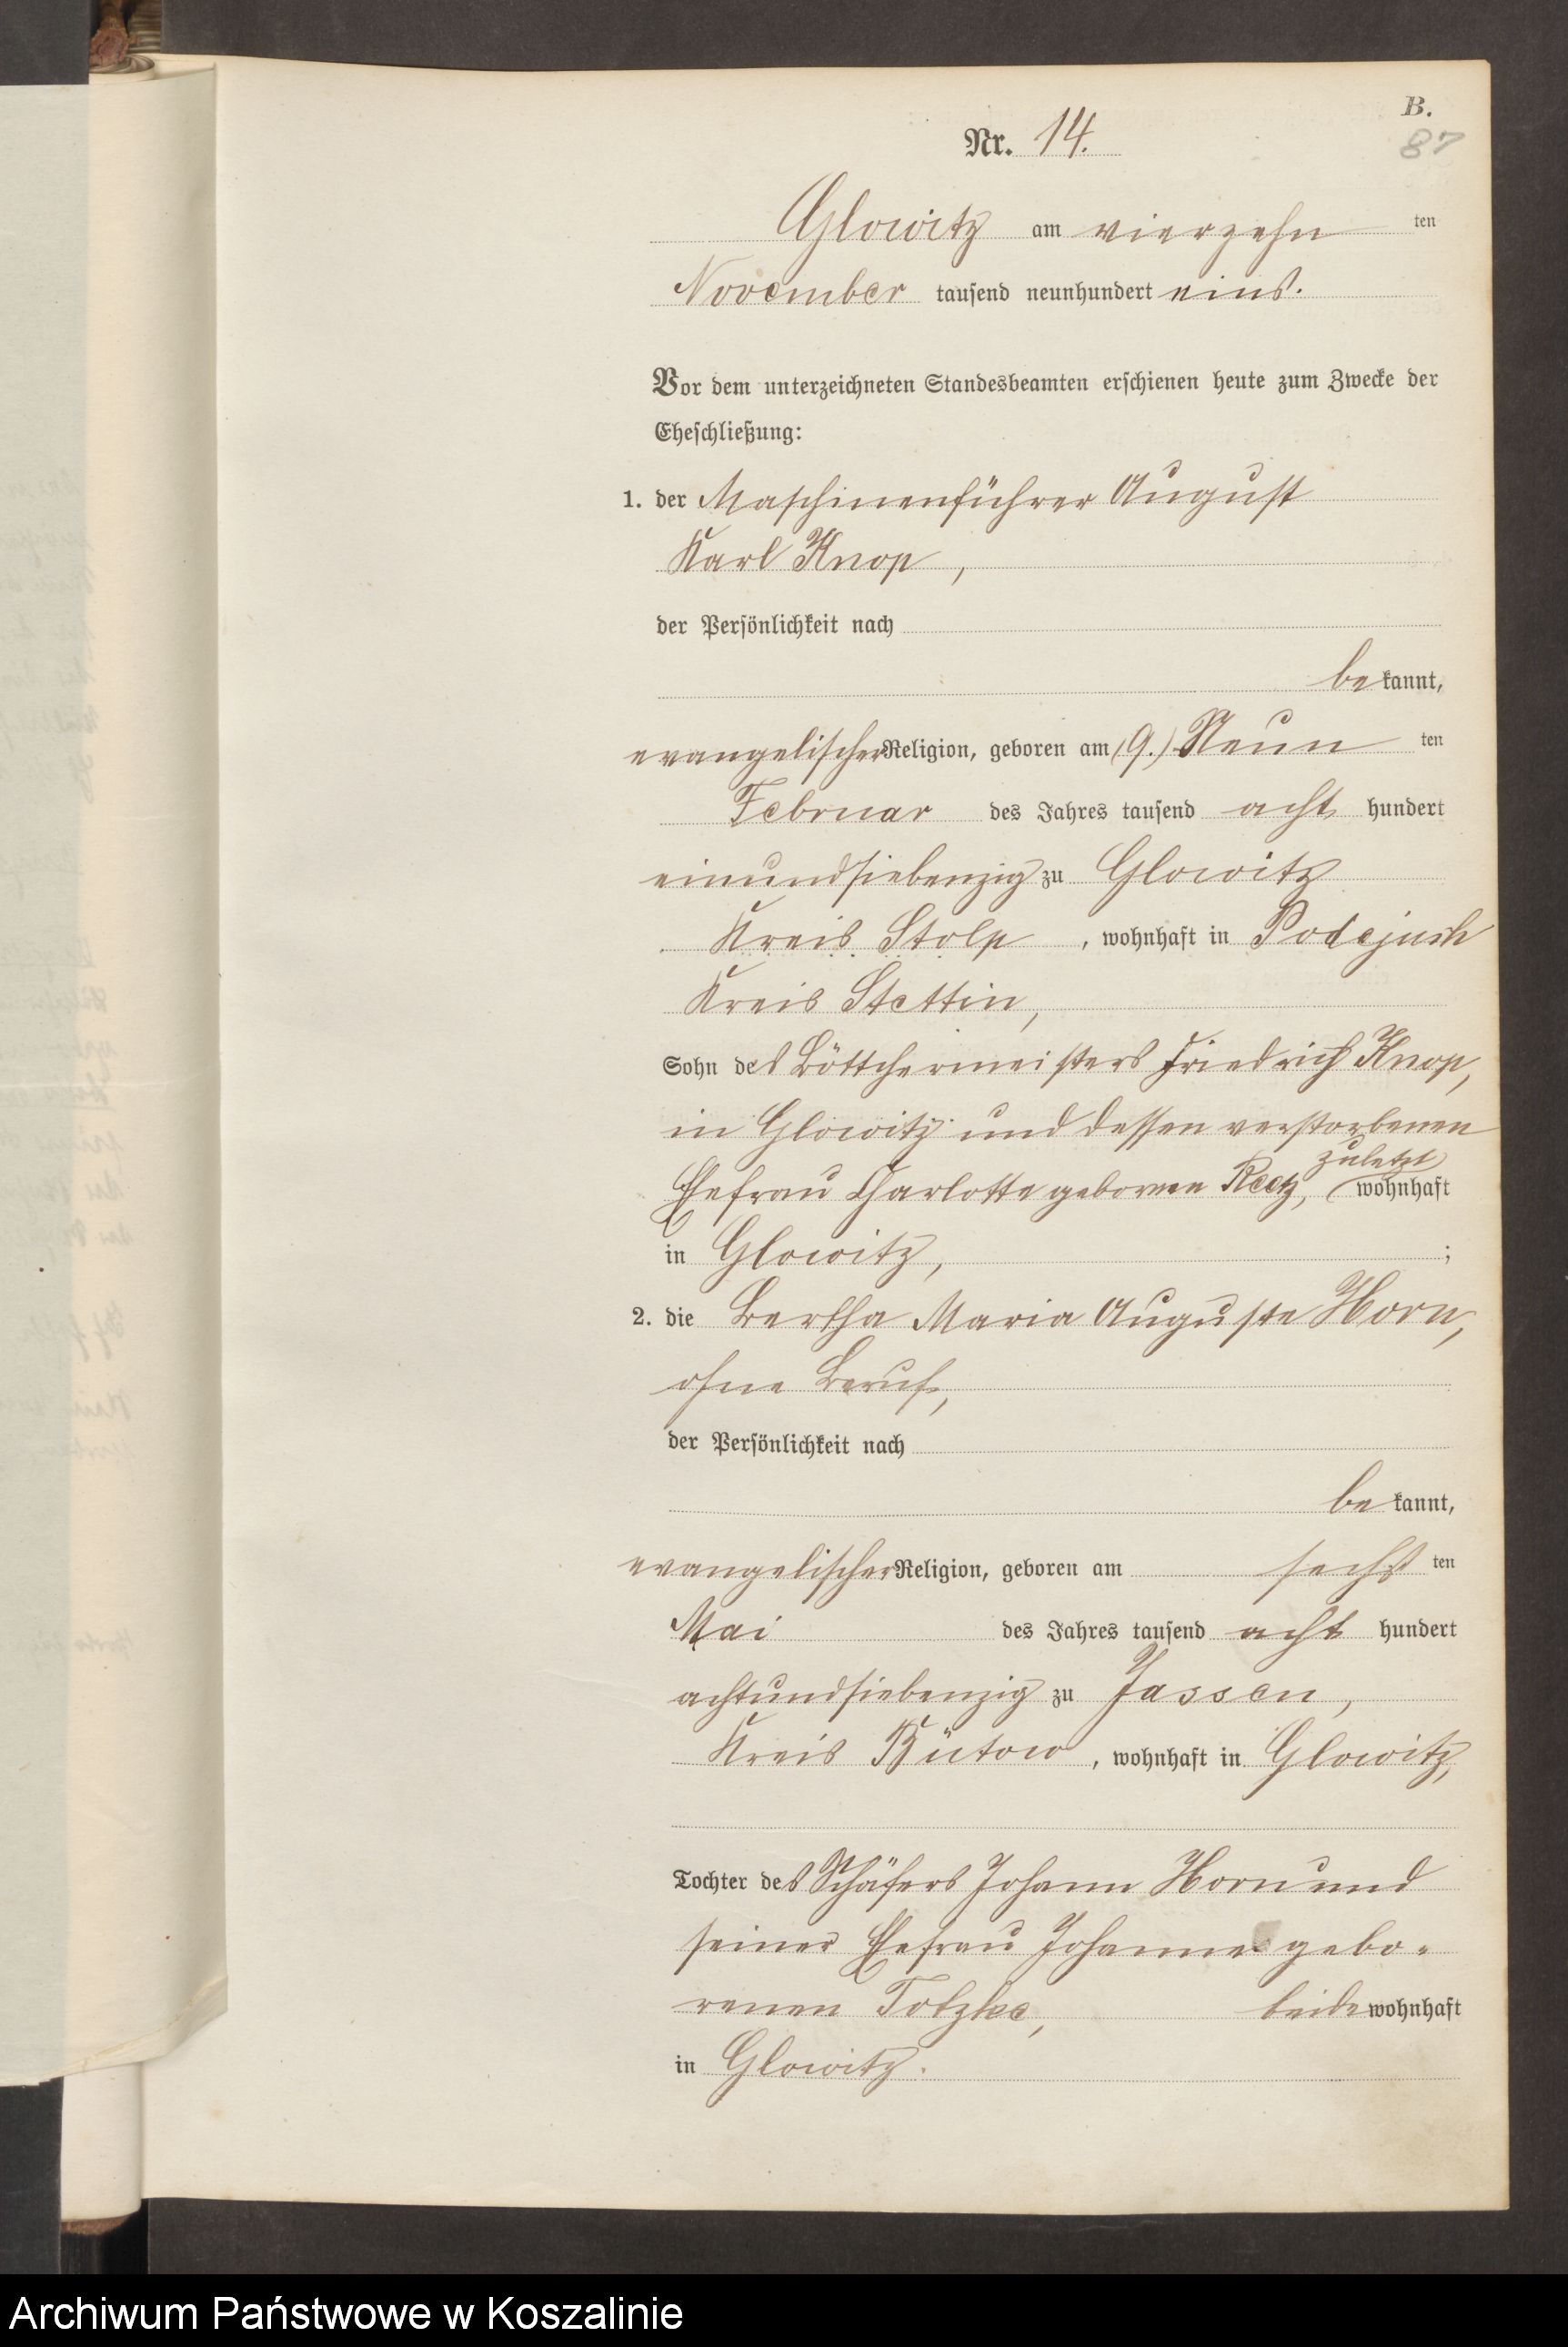 B.
Nr. 14.
87
Glowitz am vierzehn ten
November tausend neunhundert eins.
Vor dem unterzeichneten Standesbeamten erschienen heute zum Zwecke der
Eheschließung:
1. der Maschinenführer August
Karl Knop,
der Persönlichkeit nach
bekannt,
evangelischer Religion, geboren am (9.) Neun ten
Februar des Jahres tausend acht hundert
einundsiebenzig zu Glowitz
Kreis Stolp, wohnhaft in Podejuch
Kreis Stettin,
Sohn des Böttchermeisters Friedrich Knop,
in Glowitz und dessen verstorbenen
zuletzt
Ehefrau Charlotte gebornen Reetz, wohnhaft
in Glowitz, ;
2. die Bertha Maria Auguste Horn,
ohne Beruf,
der Persönlichkeit nach
bekannt,
evangelischer Religion, geboren am sechs ten
Mai des Jahres tausend acht hundert
achtundsiebenzig zu Jassen,
Kreis Bütow, wohnhaft in Glowitz,
Tochter des Schäfers Johann Horn und
seiner Ehefrau Johanne gebo-
renen Totzke, beide wohnhaft
in Glowitz.
Archiwum Państwowe w Koszalinie